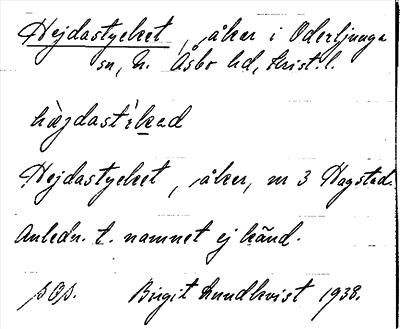 Hejdastycket, åker i Oderljunga
sn, N. Åsbo hd, Krist. l.
hæjdasti̇̀kad
Hejdastycket, åker, nr 3 Hagstad.
Anledn. t. namnet ej känd.
pop. Birgit Lundkvist 1938.